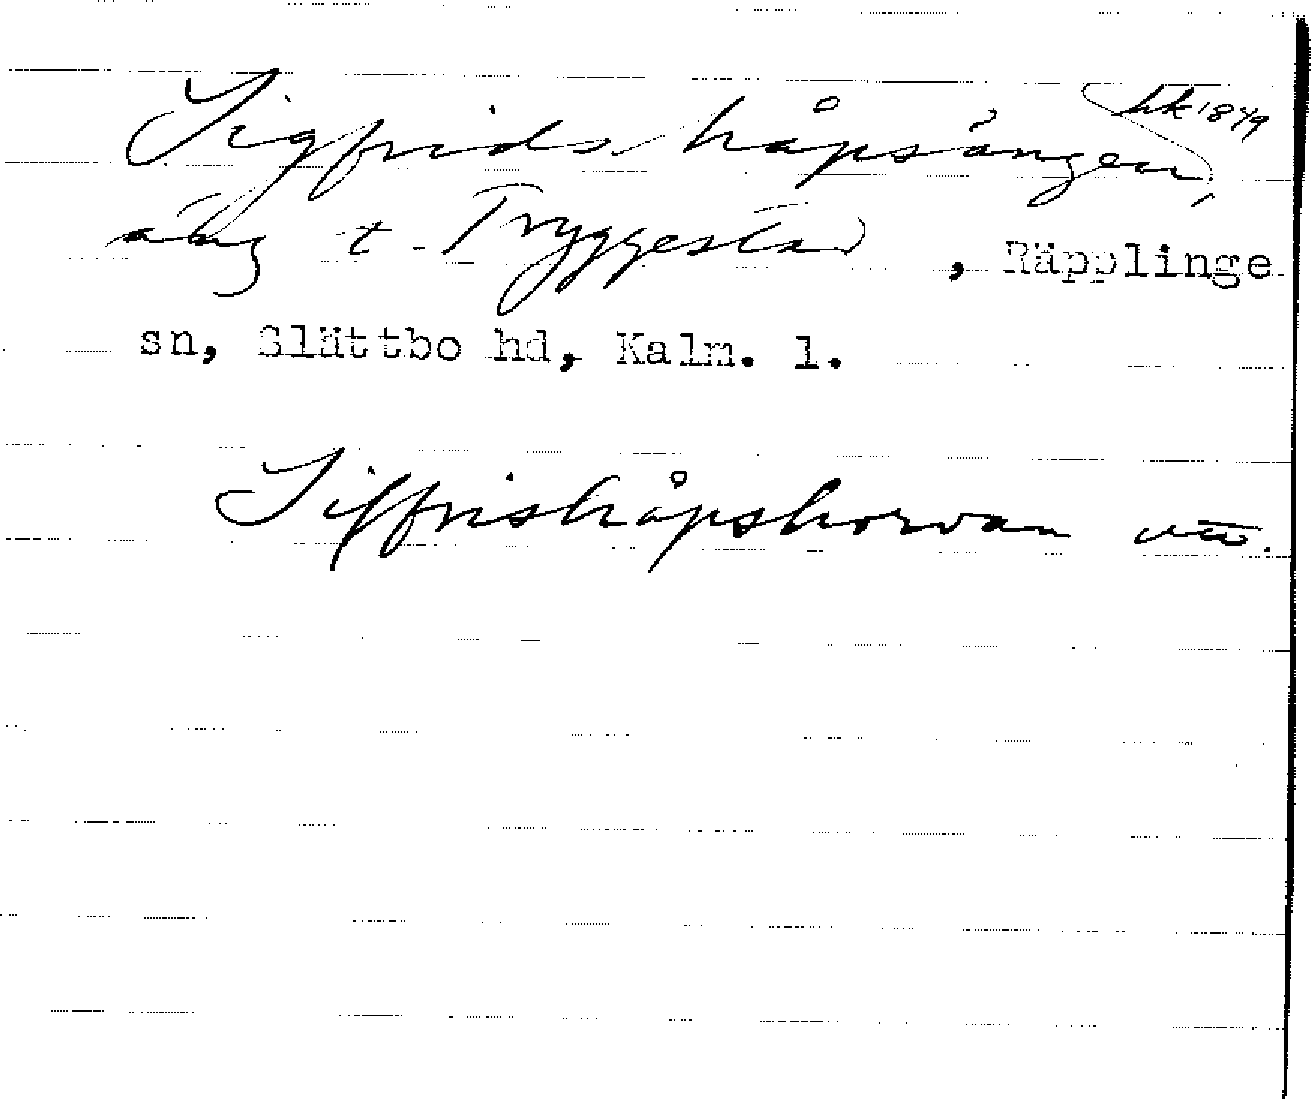 Sigfrids håpsängen, lk 1879
äng t. Tryggestad, Räpplinge
sn, Slättbo hd, Kalm. l.
Siffrishåpshorvan